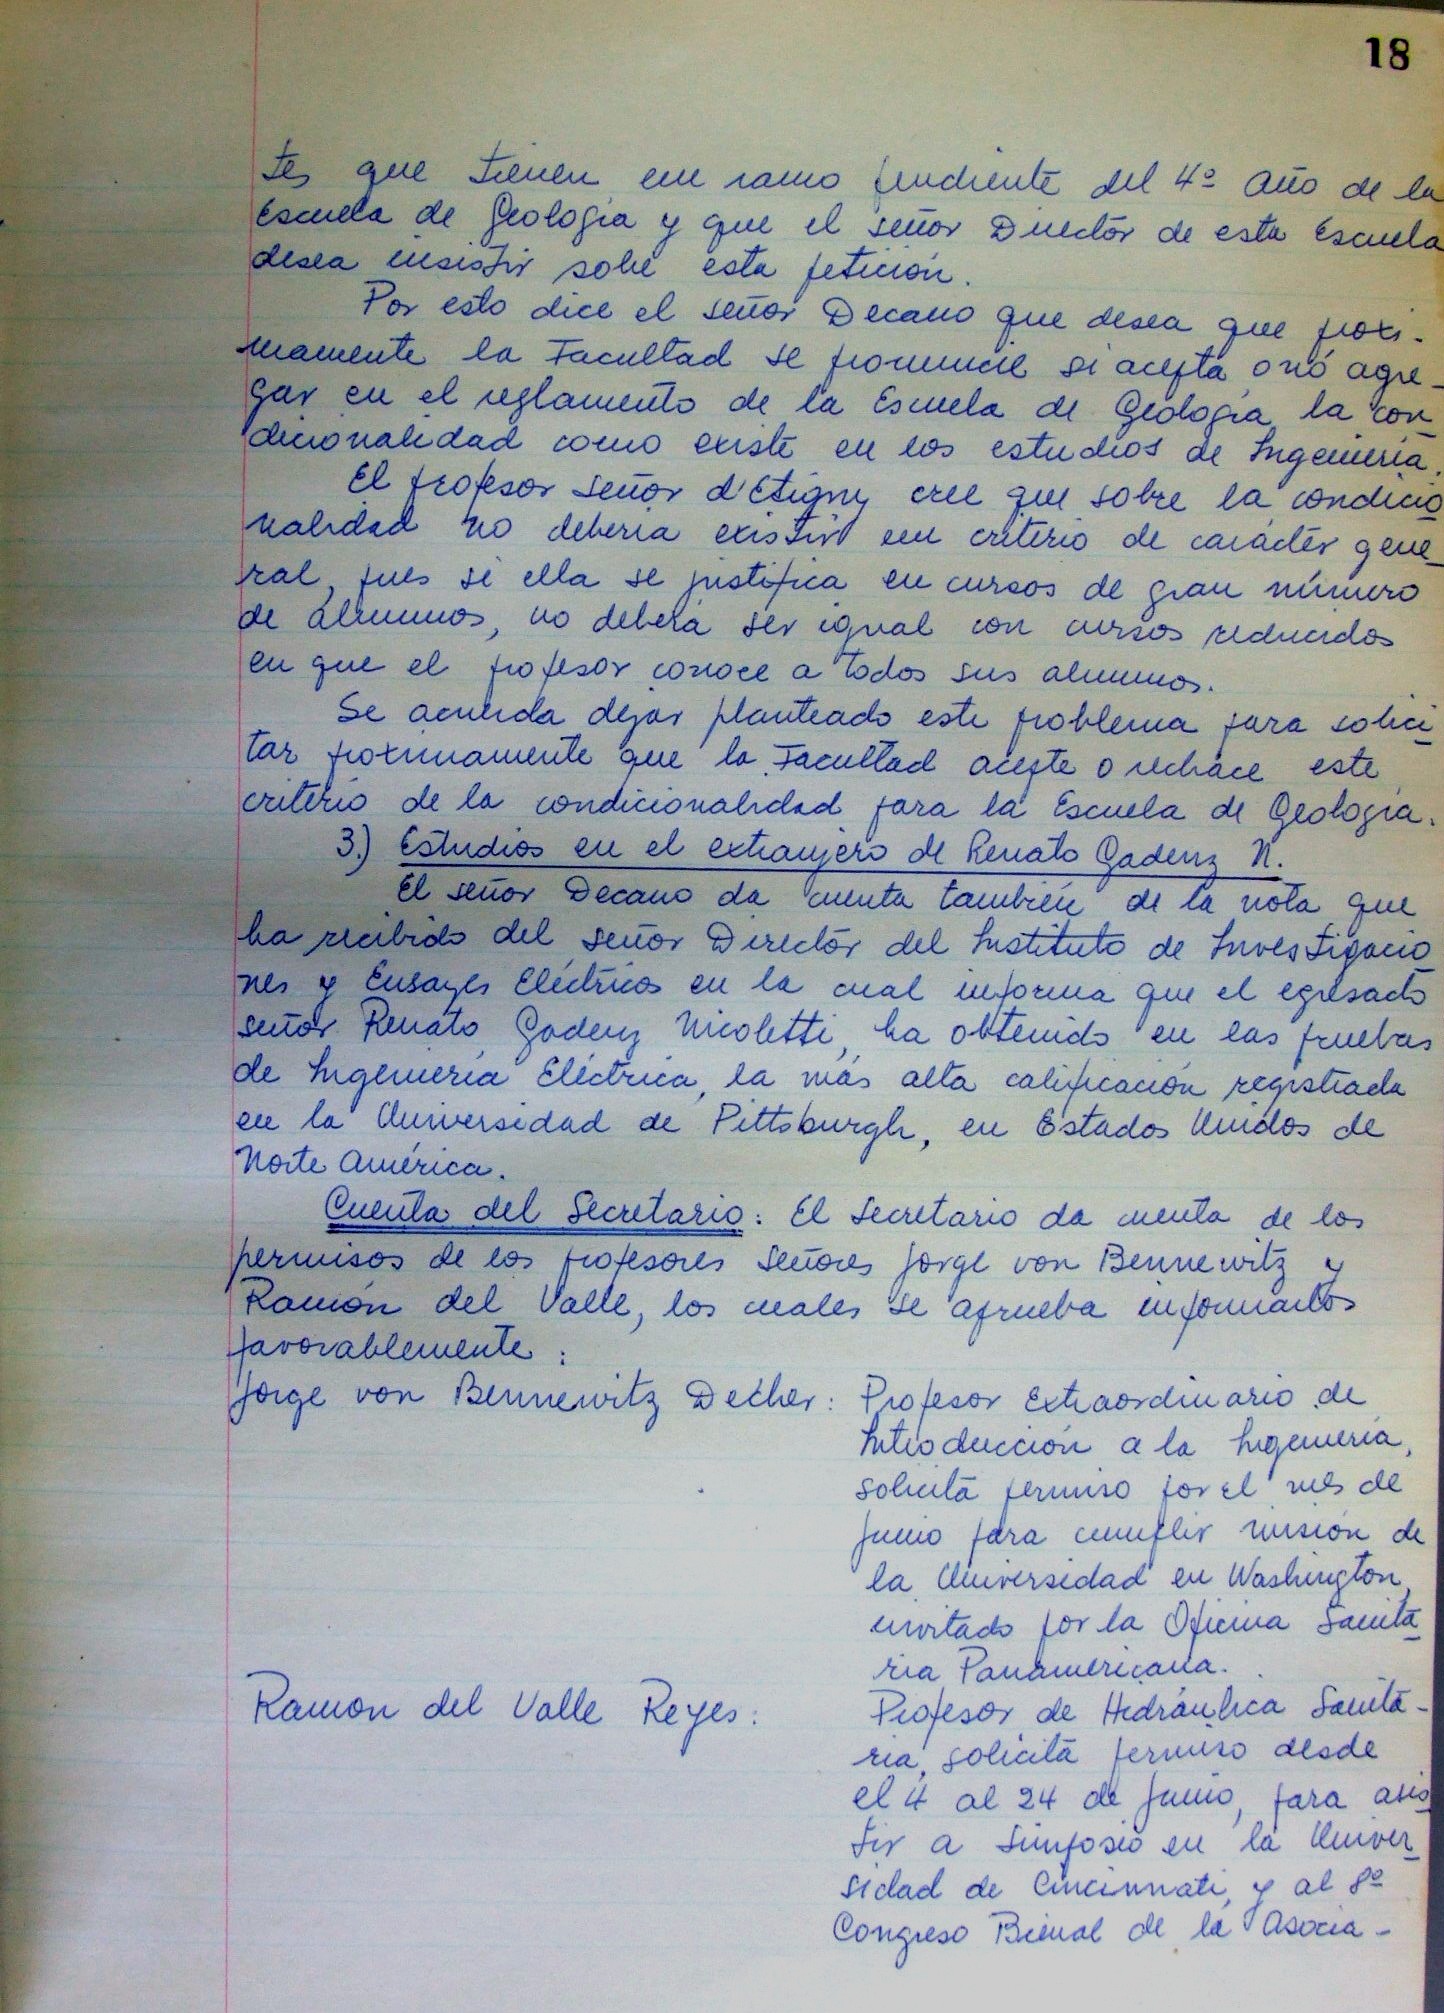 18
tes que tienen un ramo pendiente del 4º año de la
Escuela de Geología y que el señor Director de esta Escuela
desea insistir sobre esta petición.
Por esto dice el señor Decano que desea que próxi-
mamente la Facultad se pronuncie si acepta o nó agre-
gar en el reglamento de la Escuela de Geología la con
dicionalidad como existe en los estudios de Ingeniería.
El profesor señor d'Etigny cree que sobre la condicio
nalidad no debería existir un criterio de carácter gene-
ral, pues si ella se justifica en cursos de gran número
de alumnos, no deberá ser igual con cursos reducidos
en que el profesor conoce a todos sus alumnos.
Se acuerda dejar planteado este problema para solici
tar próximamente que la Facultad acepte o rechace este
criterio de la condicionalidad para la Escuela de Geología.
3.) Estudios en el extranjero de Renato Gadenz N.
El señor Decano da cuenta también de la nota que
ha recibido del señor Director del Instituto de Investigacio
nes y Ensayes Eléctricos en la cual informa que el egresado
señor Renato Gadenz Nicoletti, ha obtenido en las pruebas
de Ingeniería Eléctrica, la más alta calificación registrada
en la Universidad de Pittsburgh, en Estados Unidos de
Norte América.
Cuenta del Secretario: El Secretario da cuenta de los
permisos de los profesores señores Jorge von Bennewitz y
Ramón del Valle, los cuales se aprueba informarlos
favorablemente:
Jorge von Bennewitz Decher: Profesor Extraordinario de
Introducción a la Ingeniería,
solicita permiso por el mes de
Junio para cumplir misión de
la Universidad en Washington,
invitado por la Oficina Sanita-
ria Panamericana.
Ramon del Valle Reyes: Profesor de Hidráulica Sanita-
ria, solicita permiso desde
el 4 al 24 de Junio, para asis
tir a Simposio en la Univer-
sidad de Cincinnati, y al 8º
Congreso Bienal de la Asocia-